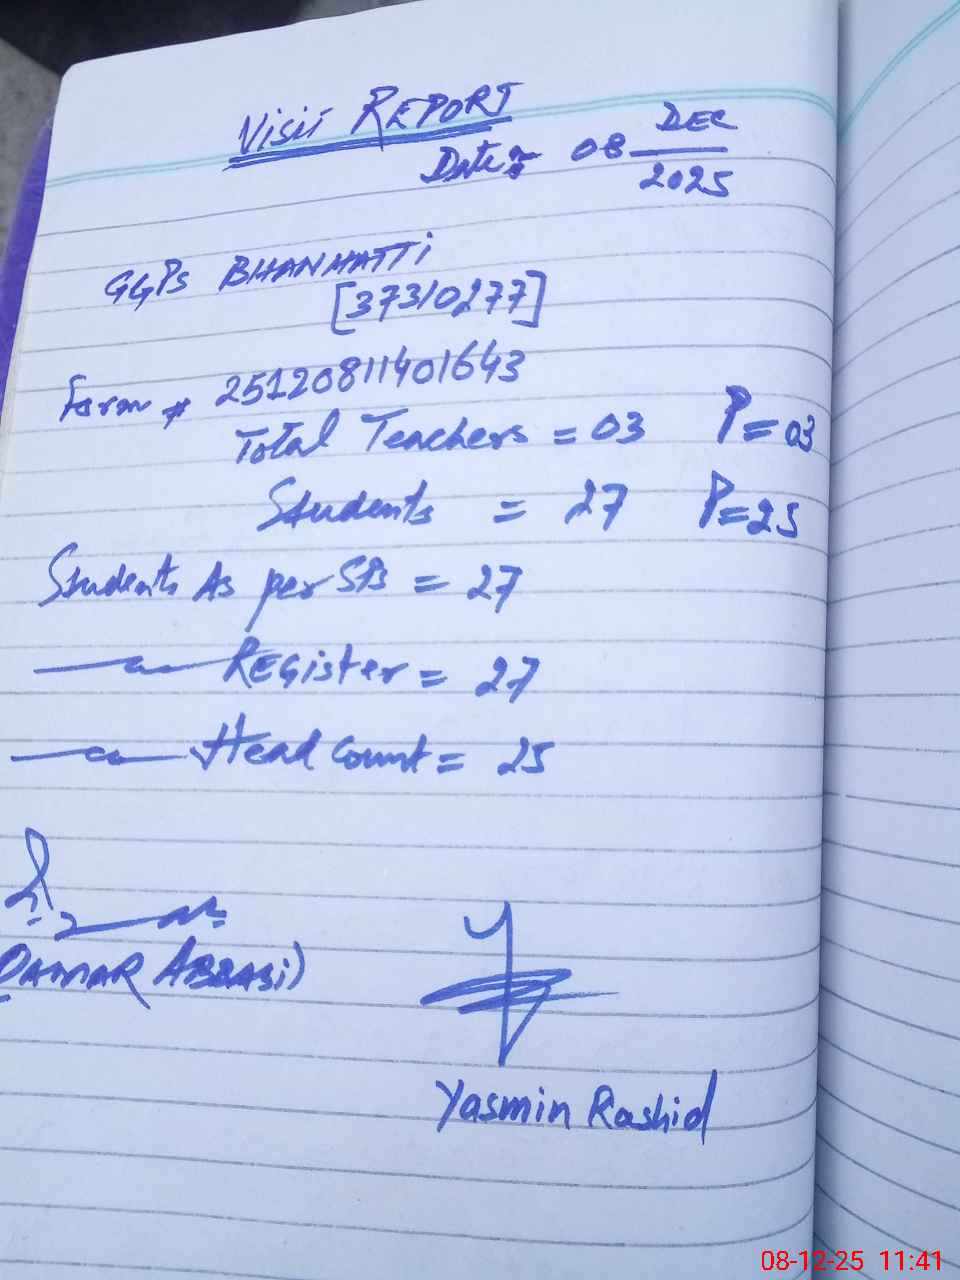 VISIT REPORT
Date:- 08 DEC
2025
GGPS BHANHATTI
[37310277]
Form # 25120811401643
Total Teachers = 03 P=03
Students = 27 P=25
Students As per SIS = 27
Register = 27
Head Count = 25
QAMAR ABBASI)
Yasmin Rashid
08-12-25 11:41